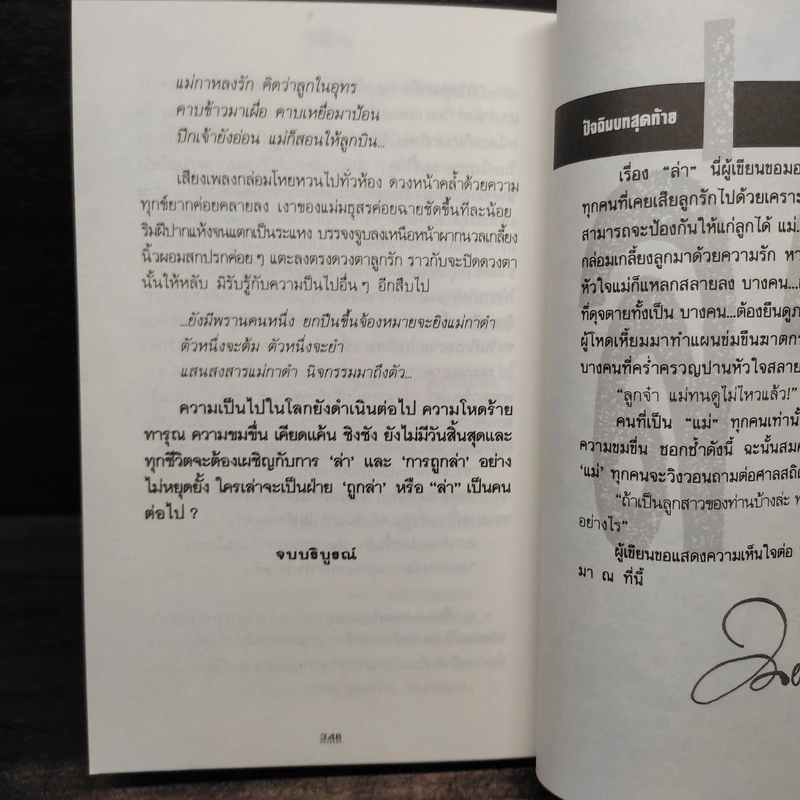 แม่กาหลงรัก คิดว่าลูกในอุทร
คาบข้าวมาเผื่อ คาบเหยื่อมาป้อน
ปีกเจ้ายังอ่อน แม่ก็สอนให้ลูกบิน...
เสียงเพลงกล่อมโหยหวนไปทั่วห้อง ดวงหน้าคล้ำด้วยความ
ทุกข์ยากค่อยคลายลง เงาของแม่มธุสรค่อยฉายชัดขึ้นทีละน้อย
ริมฝีปากแห้งจนแตกเป็นระแหง บรรจงจูบลงเหนือหน้าผากนวลเกลี้ยง
นิ้วผอมสกปรกค่อยๆ แตะลงตรงดวงตาลูกรัก ราวกับจะปิดดวงตา
นั้นให้หลับ มิรับรู้กับความเป็นไปอื่นๆ อีกสืบไป
...ยังมีพรานคนหนึ่ง ยกปืนขึ้นจ้องหมายจะยิงแม่กาดำ
ตัวหนึ่งจะต้ม ตัวหนึ่งจะยำ
แสนสงสารแม่กาดำ นิจกรรมมาถึงตัว...
ความเป็นไปในโลกยังดำเนินต่อไป ความโหดร้าย
ทารุณ ความขมขื่น เคียดแค้น ชิงชัง ยังไม่มีวันสิ้นสุดและ
ทุกชีวิตจะต้องเผชิญกับการ ‘ล่า’ และ ‘การถูกล่า’ อย่าง
ไม่หยุดยั้ง ใครเล่าจะเป็นฝ่าย ‘ถูกล่า’ หรือ “ล่า” เป็นคน
ต่อไป ?
จบบริบูรณ์
346
ปัจฉิมบทสุดท้าย
เรื่อง “ล่า” นี่ผู้เขียนขอมอ
ทุกคนที่เคยเสียลูกรักไปด้วยเคราะ
สามารถจะป้องกันให้แก่ลูกได้ แม่.
กล่อมเกลี้ยงลูกมาด้วยความรัก หา
หัวใจแม่ก็แหลกสลายลง บางคน...
ที่ดุจตายทั้งเป็น บางคน...ต้องยืนดูภ
ผู้โหดเหี้ยมมาทำแผนข่มขืนฆาตกร
บางคนที่คร่ำครวญปานหัวใจสลาย
“ลูกจ๋า แม่ทนดูไม่ไหวแล้ว!”
คนที่เป็น “แม่” ทุกคนเท่านั้
ความขมขื่น ชอกช้ำดังนี้ ฉะนั้นสม
‘แม่’ ทุกคนจะวิงวอนถามต่อศาลสถิต
“ถ้าเป็นลูกสาวของท่านบ้างล่ะ ท
อย่างไร”
ผู้เขียนขอแสดงความเห็นใจต่อ
มา ณ ที่นี้